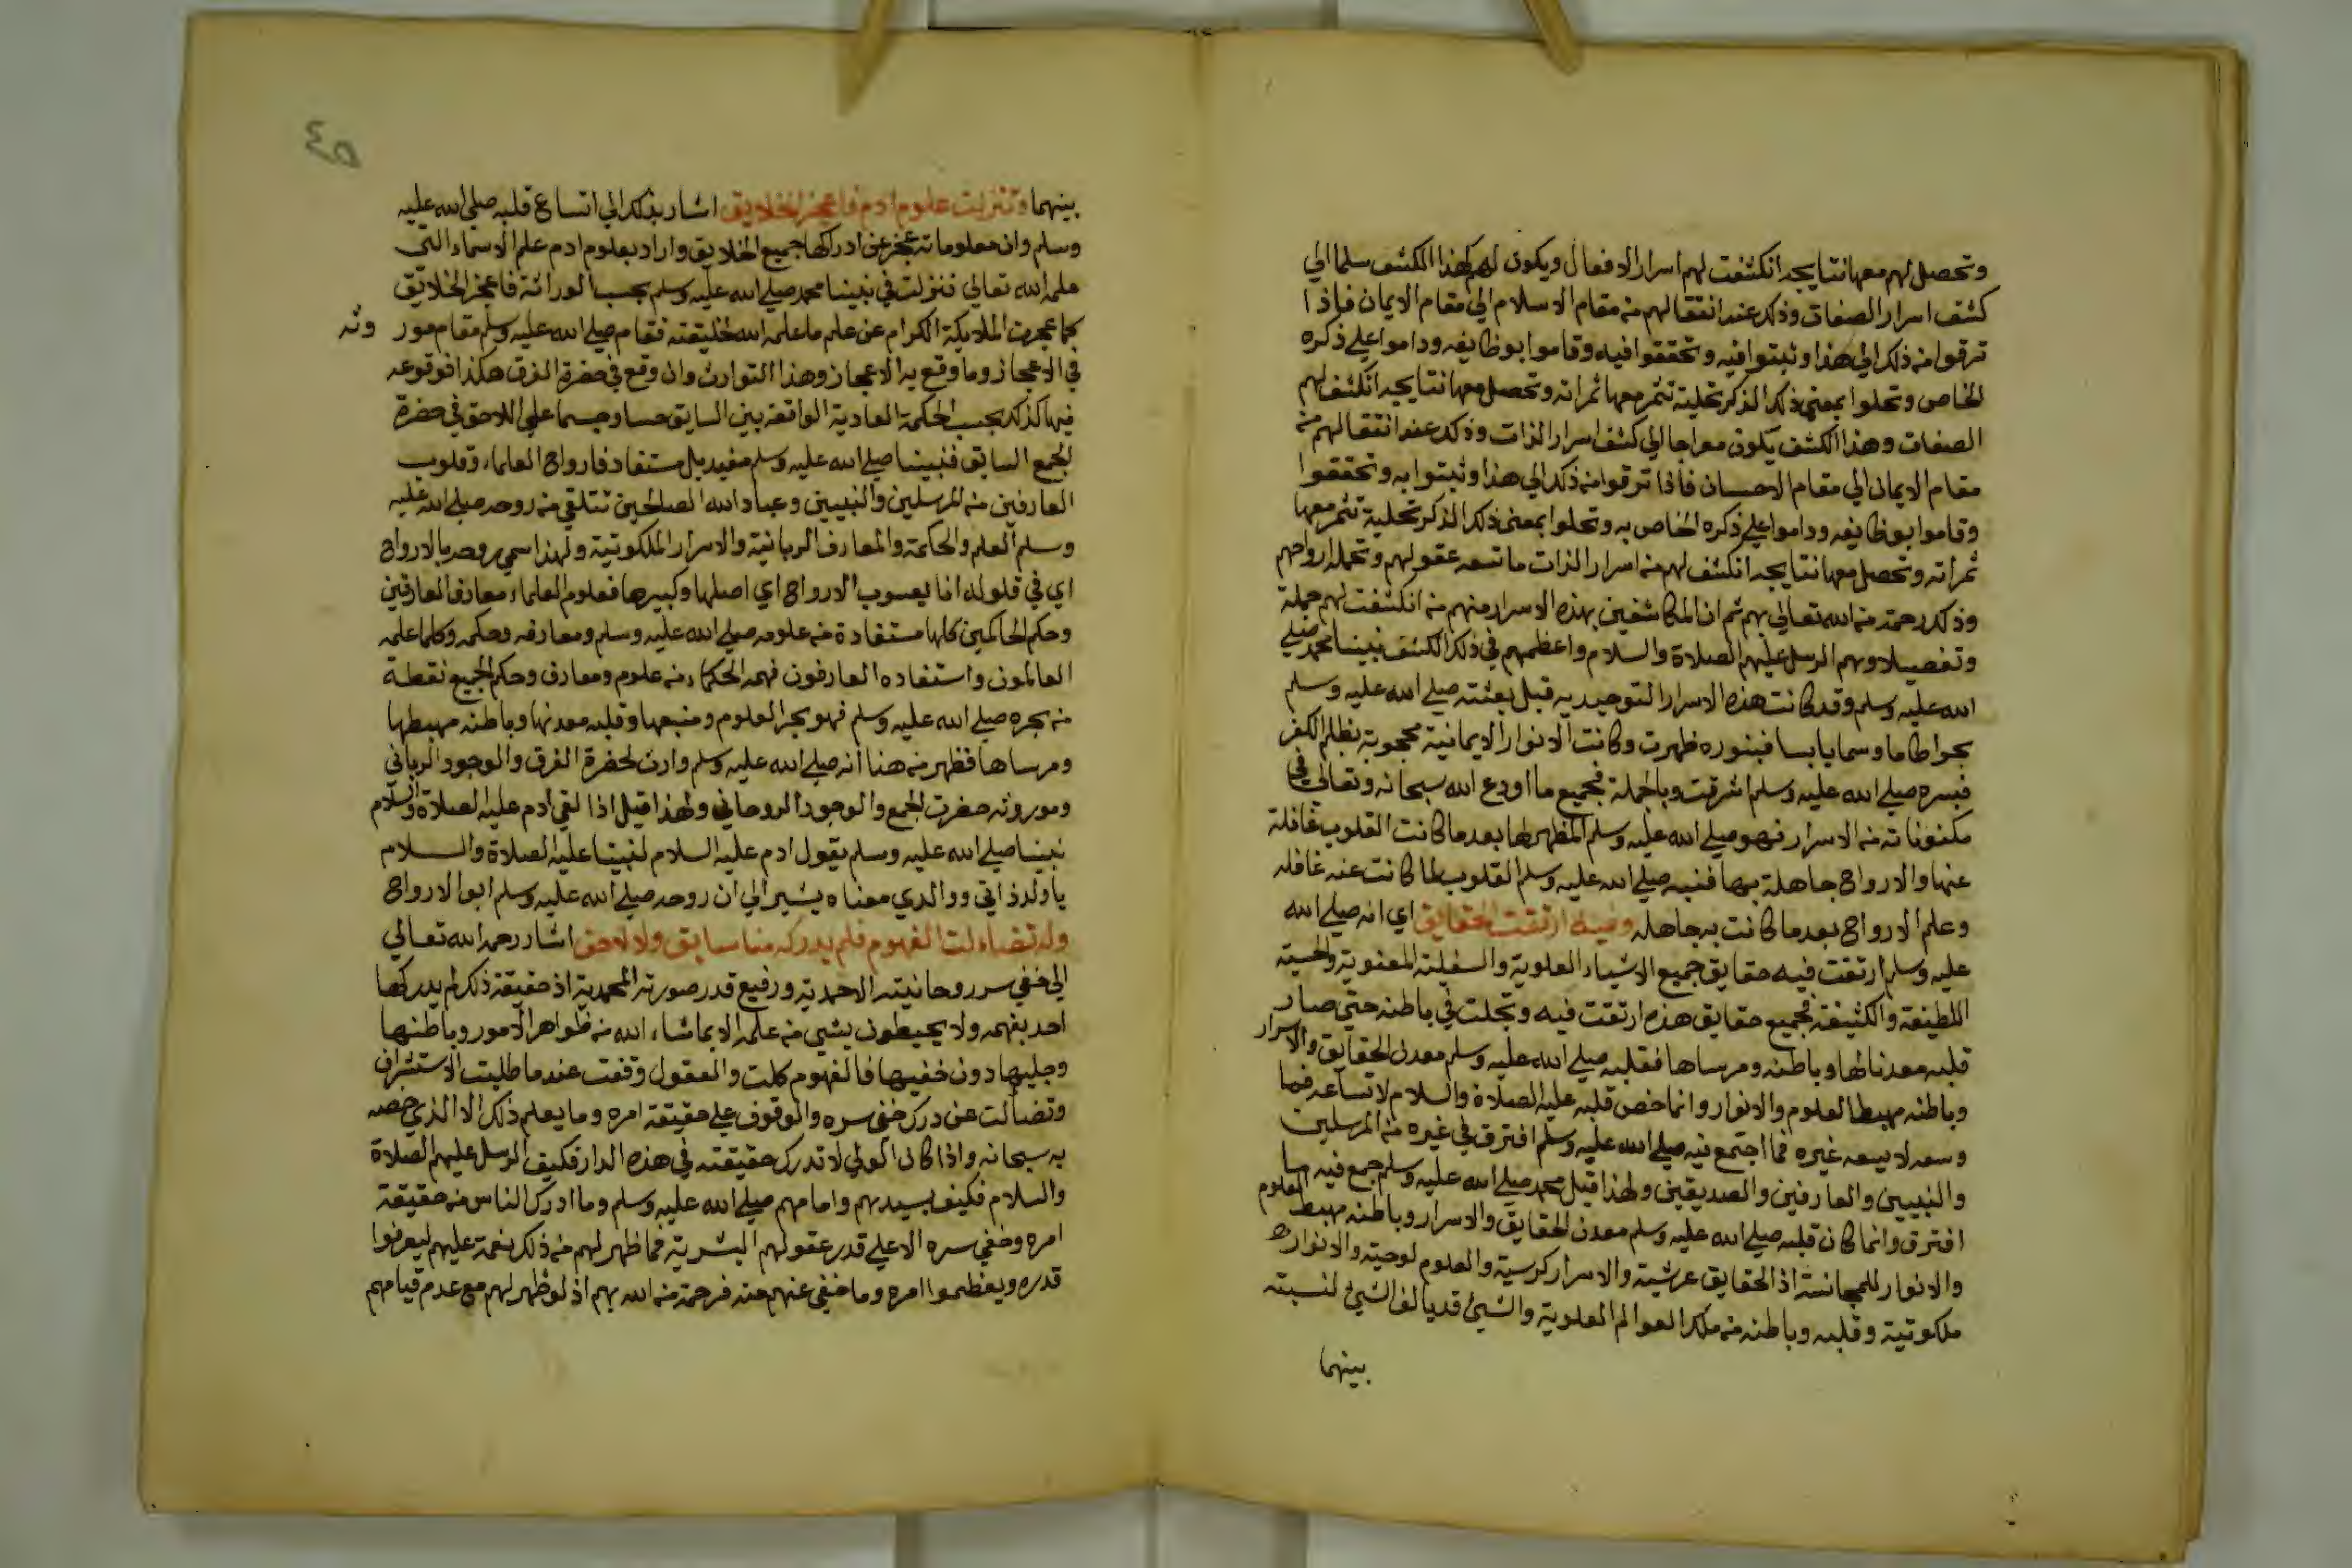 وتحصل لهم معها نتايجه انكشفت لهم اسرار الافعال ويكون لهم هذا الكشف سلما الي
كشف اسرار الصفات وذلك عند انتقالهم من مقام الاسلام الي مقام الايمان فاذا
ترقوا من ذلك الي هذا وثبتوا فيه وتحققوا فيه وقاموا بوظايفه وداموا علي ذكره
الخاص وتحلوا بمعني ذلك الذكر تحلية تثمر معها ثمراته وتحصل معها نتايجه انكشف لهم
الصفات وهذا الكشف يكون معراجا الي كشف اسرار الذات وذلك عند انتقالهم من
مقام الايمان الي مقام الاحسان فاذا ترقوا من ذلك الي هذا وثبتوا به وتحققوا
وقاموا بوظايفه وداموا علي ذكره الخاص به وتحلوا بمعني ذلك الذكر تحلية تثمر معها
ثمراته وتحصل معها نتايجه انكشف لهم من اسرار الذات ما تسعه عقولهم وتحمله ارواحهم
وذلك رحمة من الله تعالي بهم ثم ان المكاشفين بهذه الاسرار منهم من انكشفت لهم جملة
وتفصيلا وهم الرسل عليهم الصلاة والسلام واعظمهم في ذلك الكشف نبينا محمد صلي
الله عليه وسلم وقد كانت هذه الاسرار التوحيديه قبل بعثته صلي الله عليه وسلم
بحرا طاما وسمايابسا فبنوره ظهرت وكانت الانوار الايمانية محجوبة بظلم الكفر
فبسره صلي الله عليه وسلم اشرقت وبالجملة فجميع ما اودع الله سبحانه وتعالي في
مكنوناته من الاسرار فهو صلي الله عليه وسلم المظهر لها بعد ما كانت القلوب غافلة
عنها والارواح جاهلة بها فنبه صلي الله عليه وسلم القلوب لما كانت عنه غافله
وعلم الارواح بعد ما كانت به جاهله وفيه ارتقت الحقايق اي انه صلي الله
عليه وسلم ارتقت فيه حقايق جميع الاشياء العلوية والسفلية المعنوية والحسية
اللطيفة والكثيفة فجميع حقايق هذه ارتقت فيه وتجلت في باطنه حتي صار
قلبه معدنا لها وباطنه ومرساها فقلبه صلي الله عليه وسلم معدن الحقايق والاسرار
وباطنه مهبط العلوم والانوار وانما خص قلبه عليه الصلاة والسلام لاتساعه فما
وسعه لا يسعه غيره فما اجتمع فيه صلي الله عليه وسلم افترق في غيره من المرسلين
والنبيين والعارفين والصديقين ولهذا قيل محمد صلي الله عليه وسلم جمع فيه ما
افترق وانما كان قلبه صلي الله عليه وسلم معدن الحقايق والاسرار وباطنه مهبط العلوم
والانوار للمجانسة اذ الحقايق عرشية والاسرار كرسية والعلوم لوحية والانوار
ملكوتية وقلبه وباطنه من ملك العوالم العلوية والشيئ قد يالف الشيئ لنسبته
بينهما
٤٥
بينهما وتنزلت علوم ادم فاعجز الخلايق اشار بذلك الي اتساع قلبه صلي الله عليه
وسلم وان معلوماته عجز عن ادراكها جميع الخلايق واراد بعلوم ادم علم الاسماء التي
علمه الله تعالي فنزلت في نبينا محمد صلي الله عليه وسلم بحسب الوراثة فاعجز الخلايق
كما عجزت الملايكة الكرام عن علم ما علمه الله خليقته فقام صلي الله عليه وسلم مقام مور وثه
في الاعجاز وما وقع به الاعجاز وهذا التوارث وان وقع في حضرة الفرق هكذا فوقوعه
فيها كذلك بحسب الحكمة العادية الواقعة بين السابق حسا وجسما علي اللاحق في حضرة
الجمع السابق فنبينا صلي الله عليه وسلم مفيد بل مستفاد فارواح العلماء وقلوب
العارفين من المرسلين والنبيين وعباد الله الصالحين تتلقي من روحه صلي الله عليه
وسلم العلم والحكمة والمعارف الربانية والاسرار الملكوتية ولهذا سمي بالارواح
اي في قلوله انا يعسوب الارواح اي اصلها وكبيرها فعلوم العلماء ومعارف العارفين
وحكم الحاكمين كلها مستفادة من علومه صلي الله عليه وسلم ومعارفه وحكمه وكلما علمه
العالمون واستفاده العارفون فهمه الحكماء من علوم ومعارف وحكم الجميع نقطة
من بحره صلي الله عليه وسلم فهو بحر العلوم ومنبعها وقلبه معدنها وباطنه مهبطها
ومرساها فظهر من هنا انه صلي الله عليه وسلم وارث لحضرة الفرق والوجود الرباني
وموروثه حضرت الجمع والوجود الروحاني ولهذا قيل اذا لقي ادم عليه الصلاة والسلام
نبينا صلي الله عليه وسلم يقول ادم عليه السلام لنبينا عليه الصلاة والسلام
يا ولد ذاتي ووالدي معناه يشير الي ان روحه صلي الله عليه وسلم ابو الارواح
وله تضاءلت الفهوم فلم يدركه منا سابق ولا لاحق اشار رحمه الله تعالي
الي خفي سر روحانيته الاحمدية ورفيع قدر صورته المحمدية اذ حقيقة ذلك لم يدركها
احد بفهمه ولا يحيطون بشيي من علمه الا بما شاء الله من ظواهر الامور وباطنها
وجليها دون خفيها فالفهوم كلت والعقول وقفت عند ما طلبت الاستشراف
وتضألت عن درك خفي سره والوقوف علي حقيقة امره وما يعلم ذلك الا الذي خصه
به سبحانه واذا كان الولي لا تدرك حقيقته في هذه الدار فكيف الرسل عليهم الصلاة
والسلام فكيف بسيدهم وامامهم صلي الله عليه وسلم وما ادرك الناس من حقيقة
امره وخفي سره الا علي قدر عقولهم البشرية فما ظهر لهم من ذلك نعمة عليهم ليعرفوا
قدره ويعظموا امره وما خفي عنهم منه فرحمة من الله بهم اذ لو ظهر لهم مع عدم قيامهم